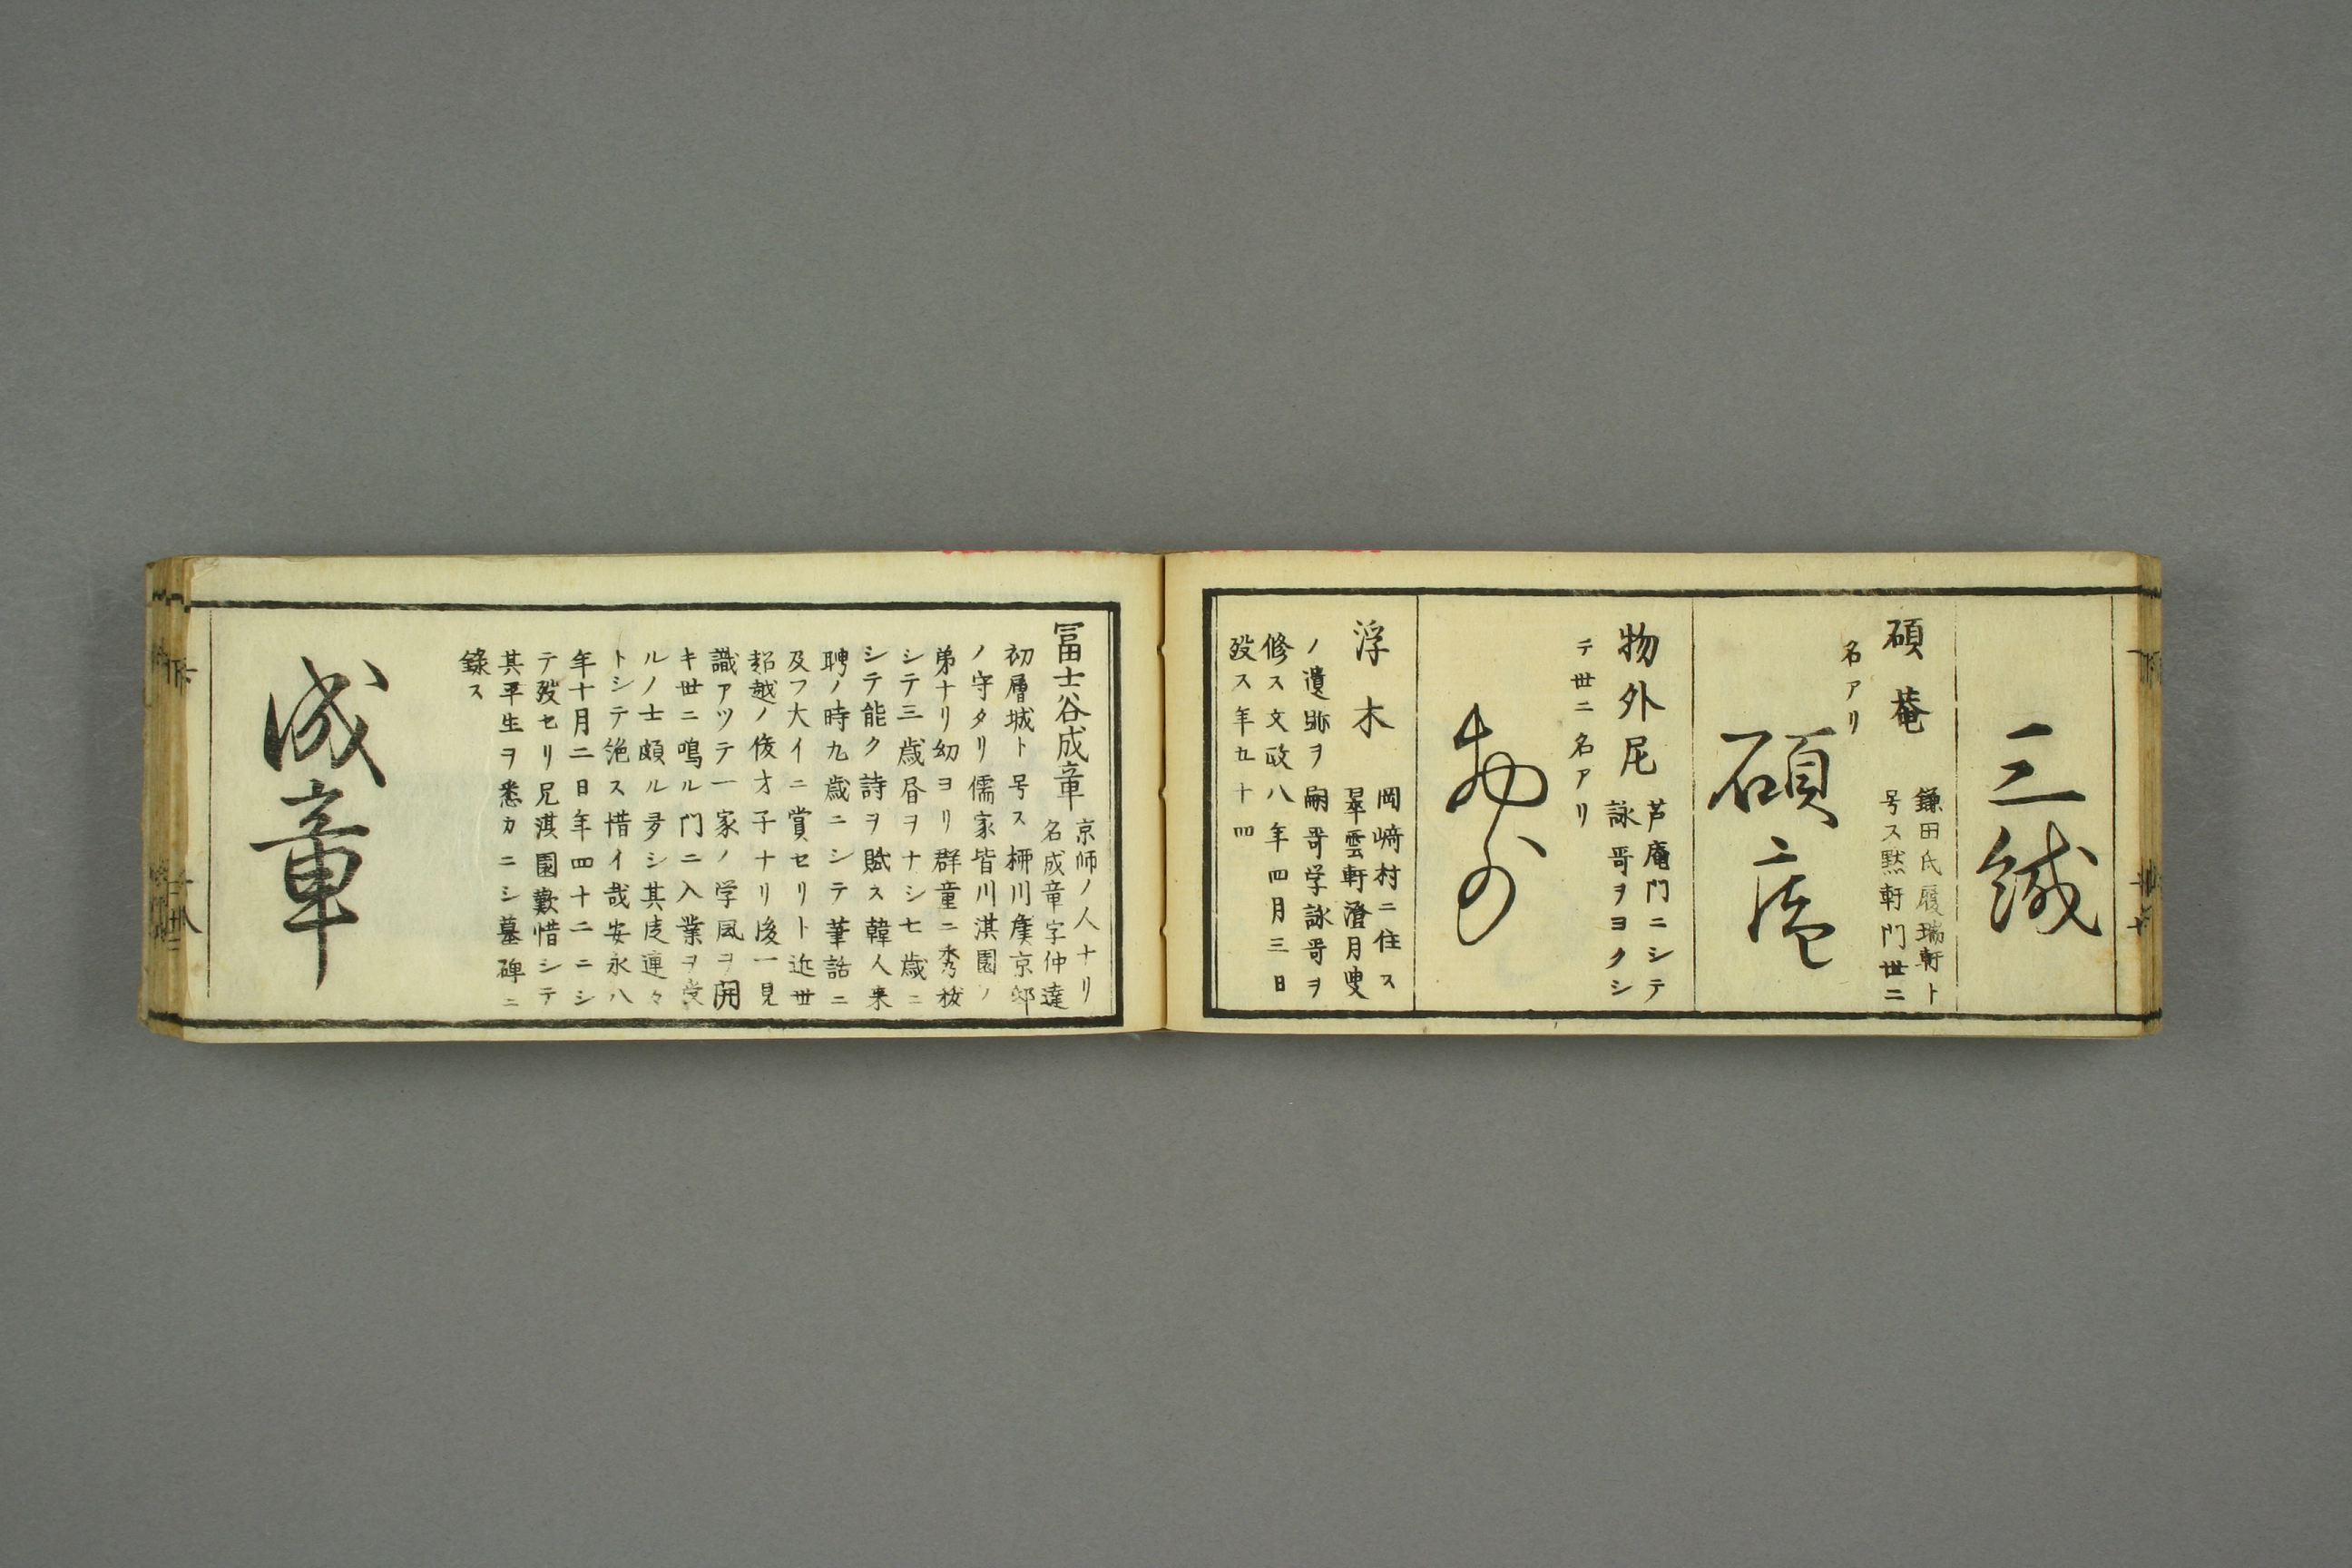 三緘
碩菴
鎌田氏履瑞軒ト
号ス黙軒門世ニ
名アリ
碩庵
物外尼
芦庵門ニシテ
詠哥ヲヨクシ
テ世ニ名アリ
物外
浮木
岡﨑村ニ住ス
翠雲軒澄月叟
ノ遺跡ヲ嗣哥学詠哥ヲ
修ス文政八年四月三日
歿ス年九十四
冨士谷成章
京師ノ人ナリ
名成章字仲達
初層城ト号ス栁川矦京邸
ノ守タリ儒家皆川淇園ノ
弟ナリ幼ヨリ群童ニ秀拔
シテ三歳昏ヲナシ七歳ニ
シテ能ク詩ヲ賦ス韓人来
聘ノ時九歳ニシテ筆話ニ
及フ大イニ賞セリト近世
超越ノ俊才子ナリ後一見
識アツテ一家ノ学風ヲ開
キ世ニ鳴ル門ニ入業ヲ受
ルノ士頗ル多シ其徒連々
トシテ絶ス惜イ哉安永八
年十月二日年四十二ニシ
テ歿セリ兄淇園歎惜シテ
其平生ヲ悉カニシ墓碑ニ
錄ス
成章